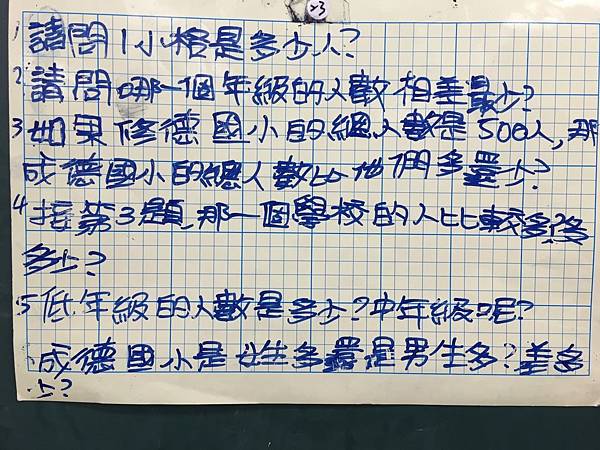 x3
1 請問1小格是多少人?
2 請問哪一個年級的人數相差最少?
3 如果修德國小的總人數是500人,那
成德國小的總人數比他們多還少?
4 接第3題,那一個學校的人比較多?多
多少?
5 低年級的人數是多少?中年級呢?
成德國小是女生多還是男生多?差多
少?